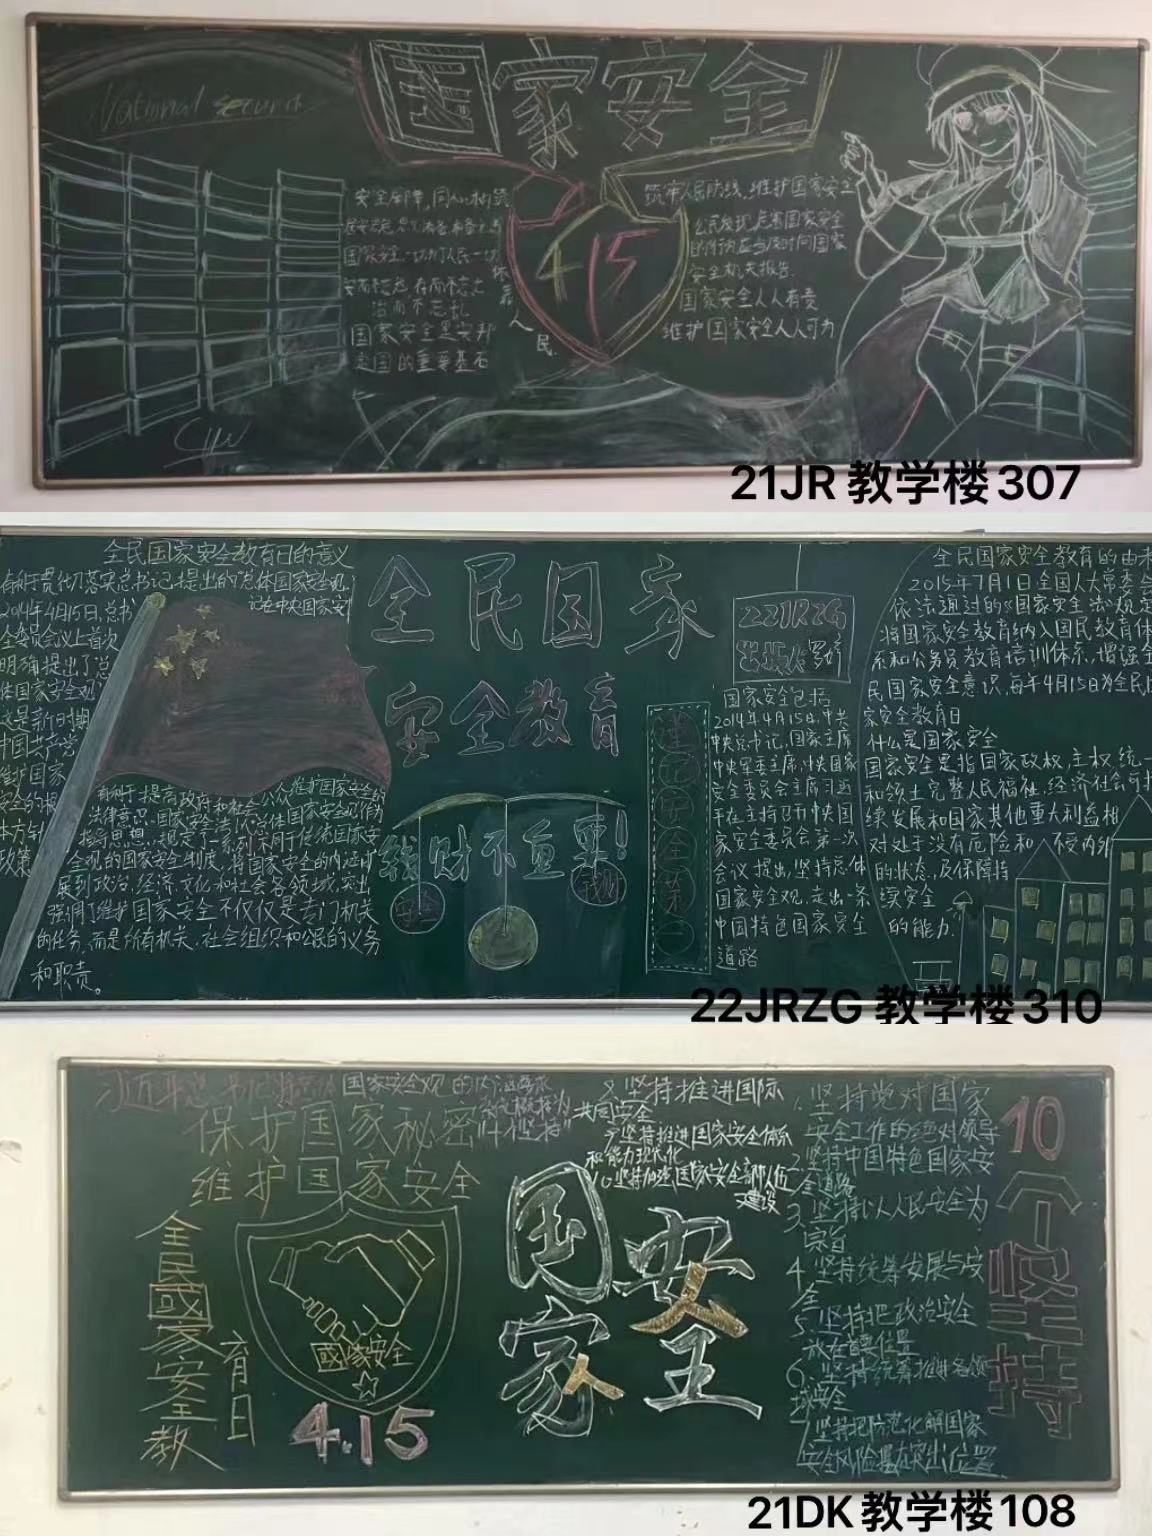 国家安全
National security
415
国家安全是安邦
定国的重要基石
人民
筑牢人民防线,维护国家安全
公民发现危害国家安全
的行为应当及时向国家
安全机关报告.
国家安全人人有责
维护国家安全人人可为
21JR 教学楼307
全民国家安全教育日的意义
有利于贯彻落实总书记提出的总体国家安全观
2014年4月15日,总书
记在中央国家安
全委员会议上首次
明确提出了总
体国家安全观
这是新时期
中国共产党
维护国家
安全的根
本方针
政策
有利于提高政府和社会公众维护国家安全的
展到政治、经济、文化和社会各领域,突出
强调了维护国家安全不仅仅是专门机关
的任务,而是所有机关、社会组织和公民的义务
和职责。
全民国家
安全教育
钱财不重要!
安全
金钱
22JRZG
谨记安全第一
国家安全包括
2014年4月15日,中共
中央总书记,国家主席
中央军委主席,中央国家
安全委员会主席习近
平在主持召开中央国
家安全委员会第一次
会议提出,坚持总体
国家安全观,走出一条
中国特色国家安全
道路
全民国家安全教育的由来
2015年7月1日全国人大常委会
依法通过的《国家安全法》规定
将国家安全教育纳入国民教育体
系和公务员教育培训体系,增强全
民国家安全意识,每年4月15日为全民国
家安全教育日
什么是国家安全
国家安全是指国家政权、主权、统一
和领土完整、人民福祉、经济社会可持
续发展和国家其他重大利益相
对处于没有危险和不受内外
的状态,及保障持
续安全
的能力.
22JRZG 教学楼310
习近平总书记将总体国家安全观的内涵要求
系统概括为
“十个坚持”
保护国家秘密
维护国家安全
全民國家安全教
育日
國家安全
4.15
国家安全
8.坚持推进国际
共同安全
9.坚持推进国家安全体系
和能力现代化
10.坚持加强国家安全部队伍
建设
1.坚持党对国家
安全工作的绝对领导
2.坚持中国特色国家安
全道路
3.坚持以人民安全为
宗旨
4.坚持统筹发展与安
全
5.坚持把政治安全
放在首要位置
6.坚持统筹推进各领
域安全
7.坚持把防范化解国家
安全风险摆在突出位置
10个坚持
21DK 教学楼108